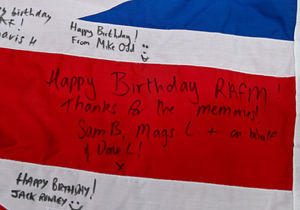 py birthday
AF!
avis H
Happy Birthday!
From Mike Odd
Happy Birthday RAFM!
Thanks for the memories!
Sam B, Mags L + on behalf
& Dave L!
x
HAPPY BIRTHDAY!
JACK ROWLEY